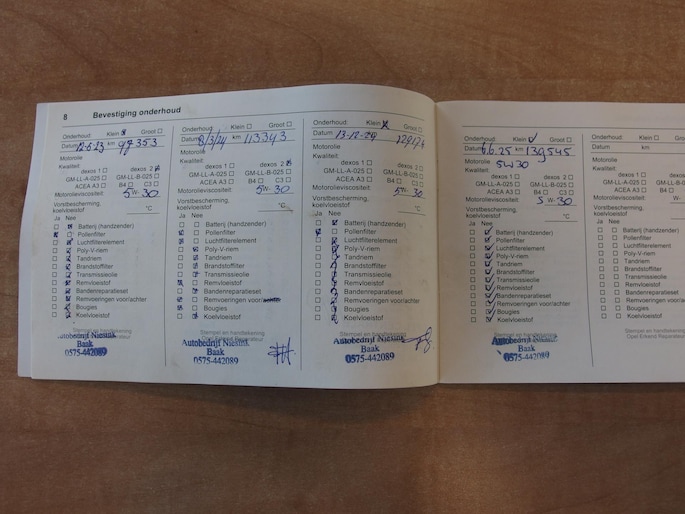 8 Bevestiging onderhoud
Onderhoud: Klein ☒ Groot ☐
Datum 12-6-23 km 97353
Motorolie
Kwaliteit:
dexos 1 ☐ dexos 2 ☒
GM-LL-A-025 ☐ GM-LL-B-025 ☐
ACEA A3 ☐ B4 ☐ C3 ☐
Motorolieviscositeit 5W-30
Vorstbescherming,
koelvloeistof °C
Ja Nee
Batterij (handzender)
Pollenfilter
Luchtfilterelement
Poly-V-riem
Tandriem
Brandstoffilter
Transmissieolie
Remvloeistof
Bandenreparatieset
Remvoeringen voor/achter
Bougies
Koelvloeistof
Stempel en handtekening
Autobedrijf Niesink
Baak
0575-442089
Onderhoud: Klein ☐ Groot ☐
Datum 8/3/24 km 113343
Motorolie
Kwaliteit:
dexos 1 ☐ dexos 2 ☒
GM-LL-A-025 ☐ GM-LL-B-025 ☐
ACEA A3 ☐ B4 ☐ C3 ☐
Motorolieviscositeit 5W-30
Vorstbescherming,
koelvloeistof °C
Ja Nee
Batterij (handzender)
Pollenfilter
Luchtfilterelement
Poly-V-riem
Tandriem
Brandstoffilter
Transmissieolie
Remvloeistof
Bandenreparatieset
Remvoeringen voor/achter
Bougies
Koelvloeistof
Stempel en handtekening
Opel Erkend Reparateur
Autobedrijf Niesink
Baak
0575-442089
Onderhoud: Klein ☒ Groot ☐
Datum 13-12-24
Motorolie
Kwaliteit:
dexos 1 ☐ dexos 2 ☐
GM-LL-A-025 ☐ GM-LL-B-025 ☐
ACEA A3 ☐ B4 ☐ C3 ☐
Motorolieviscositeit 5W-30
Vorstbescherming,
koelvloeistof °C
Ja Nee
Batterij (handzender)
Pollenfilter
Luchtfilterelement
Poly-V-riem
Tandriem
Brandstoffilter
Transmissieolie
Remvloeistof
Bandenreparatieset
Remvoeringen voor/achter
Bougies
Koelvloeistof
Stempel en handtekening
Autobedrijf Niesink
Baak
0575-442089
Onderhoud: Klein ☑ Groot ☐
Datum 6.6.25 km 139545
Motorolie 5W30
Kwaliteit:
dexos 1 ☐ dexos 2 ☐
GM-LL-A-025 ☐ GM-LL-B-025 ☐
ACEA A3 ☐ B4 ☐ C3 ☐
Motorolieviscositeit 5W-30
Vorstbescherming,
koelvloeistof °C
Ja Nee
Batterij (handzender)
Pollenfilter
Luchtfilterelement
Poly-V-riem
Tandriem
Brandstoffilter
Transmissieolie
Remvloeistof
Bandenreparatieset
Remvoeringen voor/achter
Bougies
Koelvloeistof
Autobedrijf Niesink
Baak
0575-442089
Onderhoud: Klein ☐ Groot
Datum km
Motorolie
Kwaliteit:
dexos 1 ☐
GM-LL-A-025 ☐ GM-LL-B-
ACEA A3 ☐ B4 ☐
Motorolieviscositeit W-
Vorstbescherming,
koelvloeistof
Ja Nee
Batterij (handzender)
Pollenfilter
Luchtfilterelement
Poly-V-riem
Tandriem
Brandstoffilter
Transmissieolie
Remvloeistof
Bandenreparatieset
Remvoeringen voor/achter
Bougies
Koelvloeistof
Stempel en handtekening
Opel Erkend Reparateur